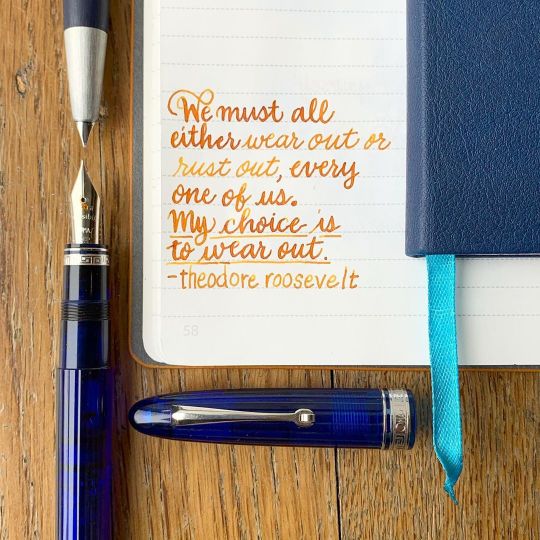 We must all
either wear out or
rust out, every
one of us.
My choice is
to wear out.
-theodore roosevelt
58